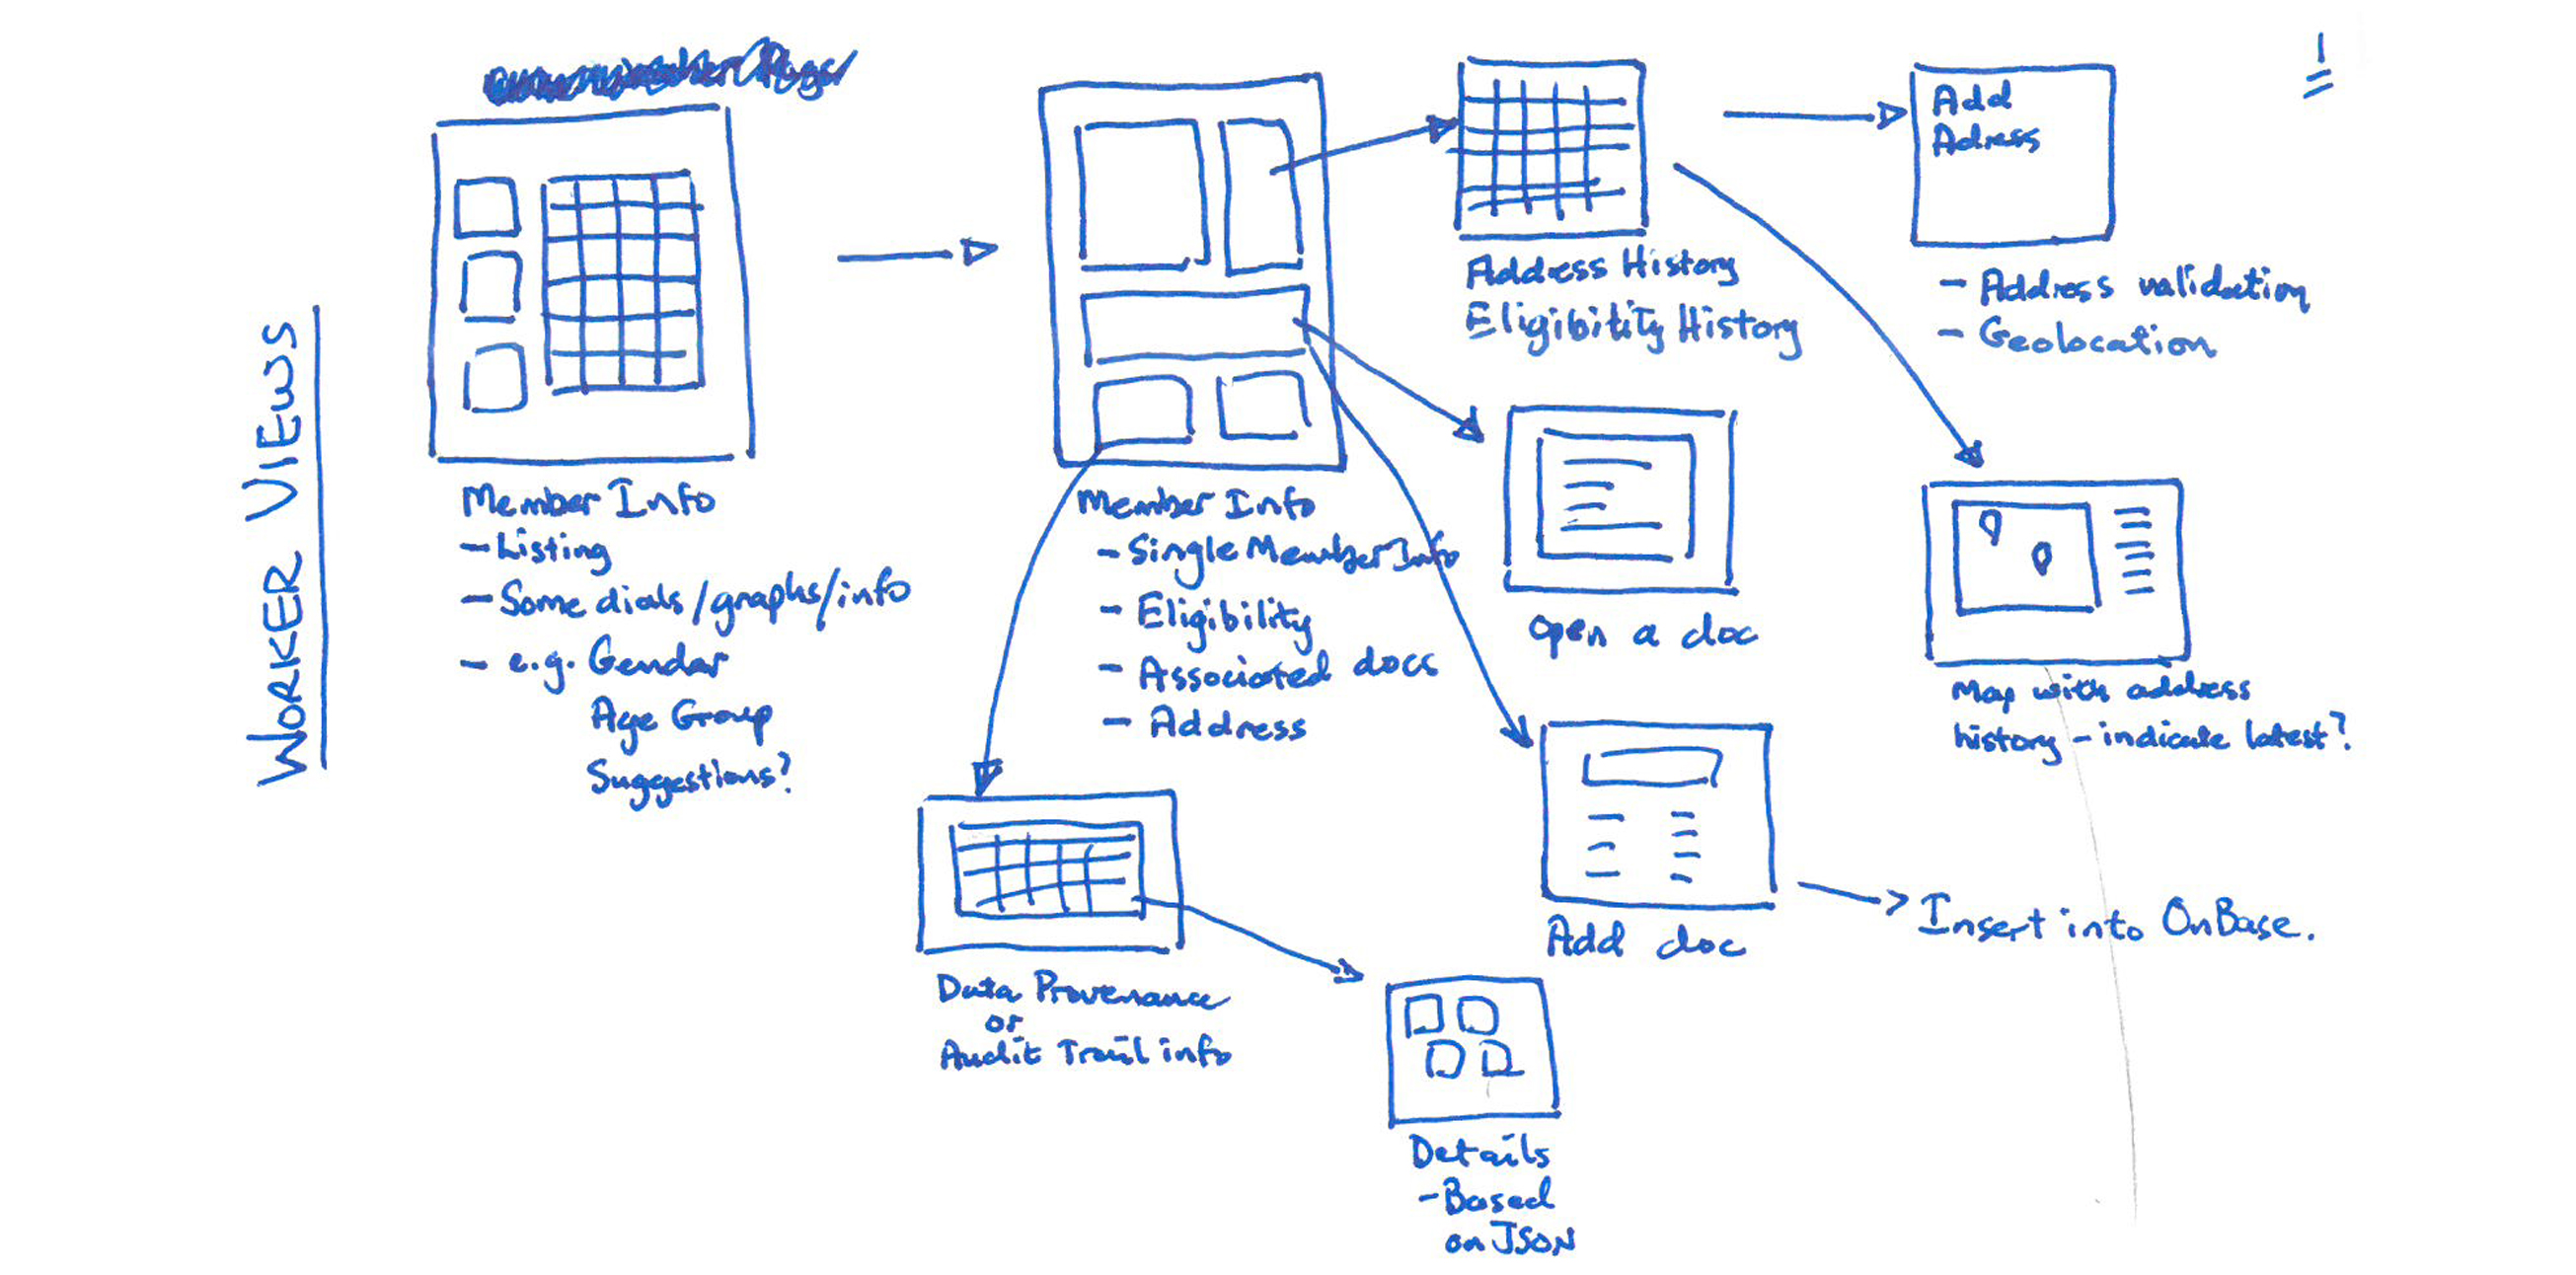 WORKER VIEWS
1
Member Info
- Listing
- Some dials/graphs/info
- e.g. Gendar
Age Group
Suggestions?
Member Info
- Single Member Info
- Eligibility
- Associated docs
- Address
Address History
Eligibility History
Add
Adress
- Address validation
- Geolocation
open a doc
Map with address
history - indicate latest?
Add doc
Insert into OnBase.
Data Provenance
or
Audit Trail info
Details
- Based
on JSON